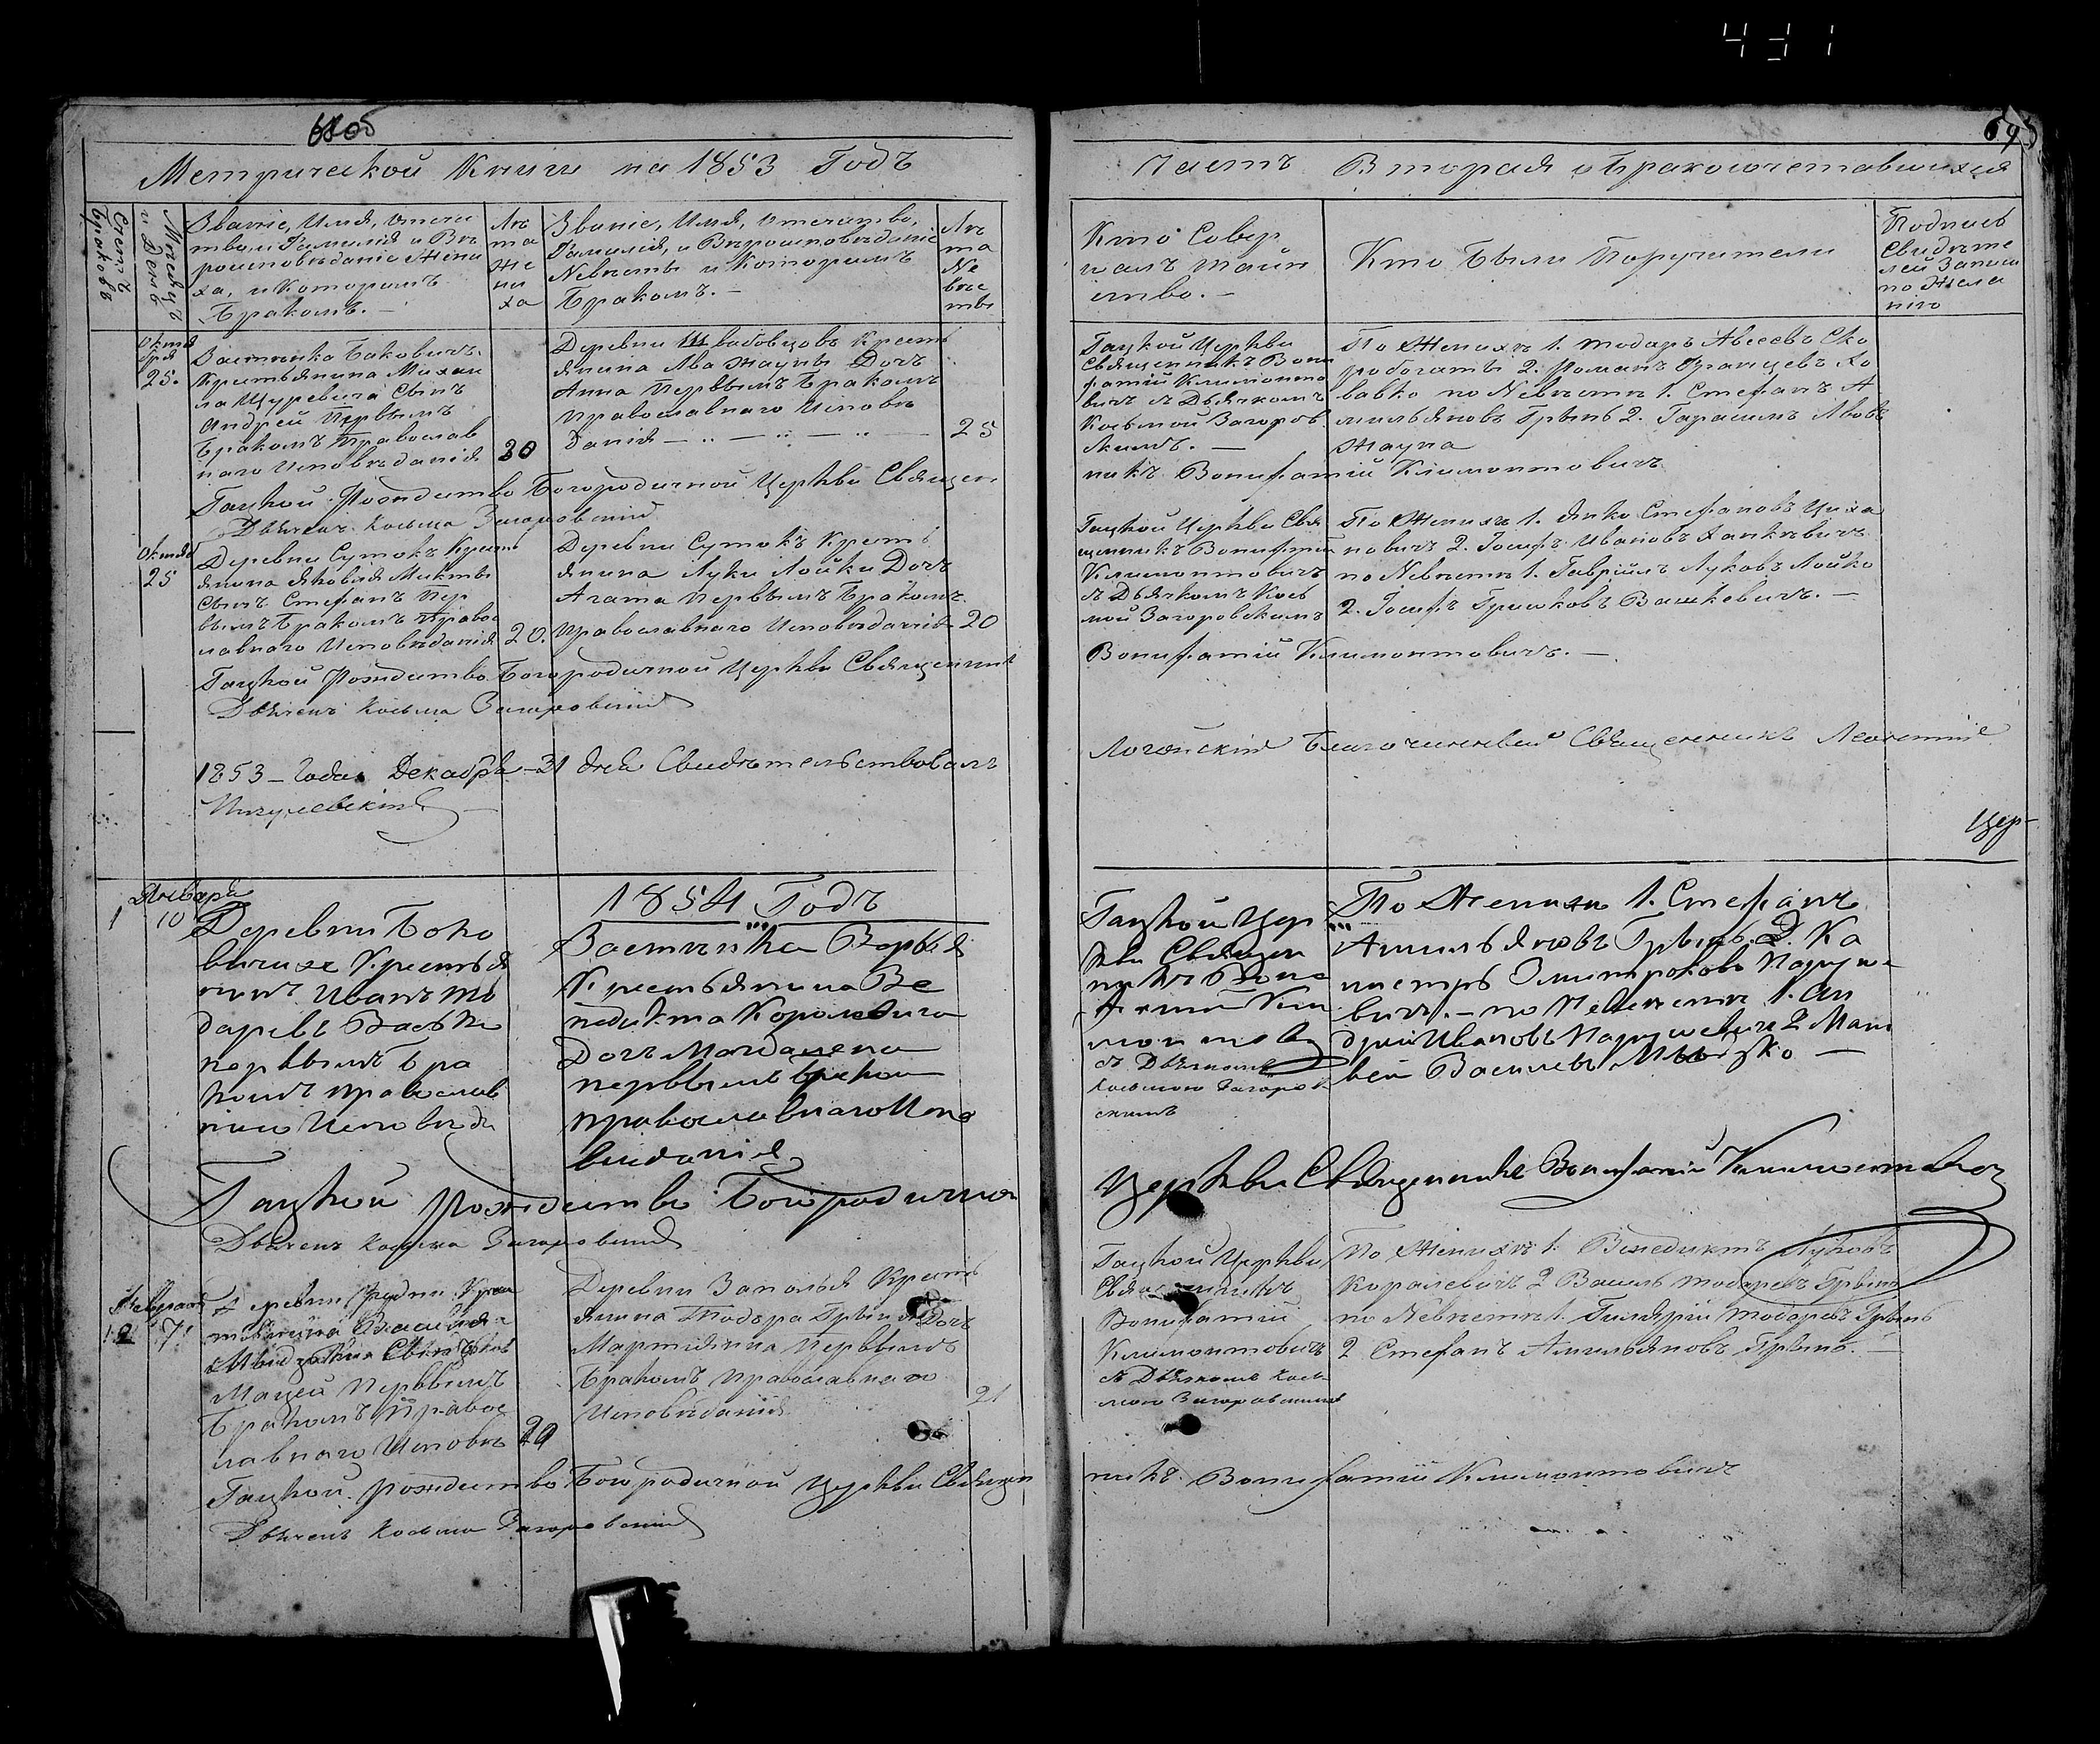 431
68об
69
Метрической Книги на 1853 Годъ
Часть Вторая о бракосочетавшихся
Счетъ Браковъ
Месяцъ и День
Званіе, Имя, Отече
тво и Фамилія и Вѣ
роисповѣданіе Жени
ха, и Которымъ
Бракомъ. —
Лѣ
та
Же
ни
ха
Званіе, Имя, Отечество,
Фамилія, и Вѣроисповѣданіе
Невѣсты и Которымъ
Бракомъ. —
Лѣ
та
Не
вѣс
ты
Кто Совер
шалъ таин
ство. —
Кто были Поручители
Подписъ
Свидѣте
лей Записи
по Жела
нію
Октя
бря
25.
Застѣнка Баковичъ
Крестьянина Михаи
ла Цуревича Сынъ
Андрей Первымъ
Бракомъ Православ
наго Исповѣданія
20
Деревни Швабовцовъ Кресть
янина Льва Жаупы Дочъ
Анна Первымъ Бракомъ
Православнаго Исповѣ
данія
25
Гацкой Церкви
Священникъ Вони
фатій Климонто
вичъ съ Дьячкомъ
Косьмой Загоров
скимъ. —
По Женихѣ 1. Тодоръ Авсеевъ Ско
робогаты 2. Романъ Францевъ Хо
вавко по Невѣстѣ 1. Стефанъ А
мильяновъ Грынь 2. Гарасимъ Львовъ
Жаупа
Гацкой Рождество Богородичной Церкви Священ
никъ Вонифатій Климонтовичъ
Дьячекъ Косьма Загоровскій
Октября
25
Деревни Сутокъ Кресть
янина Якова Микты
Сынъ Стефанъ Пер
вымъ Бракомъ Правос
лавнаго Исповѣданія
20.
Деревни Сутокъ Кресть
янина Луки Лойки Дочъ
Агата Первымъ Бракомъ
Православнаго Исповѣданія
20
Гацкой Церкви Свя
щенникъ Вонифатій
Климонтовичъ
съ Дьячкомъ Кось
мой Загоровскимъ
По Женихѣ 1. Янко Стефановъ Циха
новичъ 2. Іосифъ Ивановъ Ханкевичъ
по Невѣстѣ 1. Гаврійлъ Луковъ Лойко
2. Іосифъ Гришковъ Вашкевичъ. —
Гацкой Рождество Богородичной Церкви Священникъ
Вонифатій Климонтовичъ. —
Дьячекъ Косьма Загоровскій
1853 – Года Декабря – 31 дня Свидѣтельствовалъ
Логойскій Благочинный Священникъ Леонтій
Пигулевскій
Цер-
1854 Годъ
1
Января
10
Деревни Бако
вичихъ Крестья
нинъ Иванъ То
даревъ Ваське
первымъ бра
комъ православ
наго Исповѣда
Застѣнка Вербы
Крестьянина Ве
недикта Королевича
Дочь Магдалена
первымъ браком
православнаго Испо
вѣданія
Гацкой Цер
кви Священ
никъ Вони
фатій Кли
монтовъ
съ Дьячкомъ
Косьмою Загоров
скимъ
По Женихѣ 1. Стефанъ
Амильяновъ Грынь. 2. Ка
вичъ. – по Невѣстѣ 1. Ан
дрей Ивановъ 2 Мац
вей Васильевъ
Гацкой Рождество Богородично
Церкви Священникъ Вонифатій Климонтович
Дьячекъ Косьма Загоровскій
Февраля
2
7
Деревни Рудни Крес
тьянина Василія
Сынъ
Мацей Первымъ
Бракомъ Правос
лавнаго Исповѣ
20
Деревни Заполья Кресть
янина Тодора Грыня Дочъ
Мартіянна Первымъ
Бракомъ Православнаго
Исповѣданія
21
Гацкой Церкви
Священникъ
Вонифатій
Климонтовичъ
съ Дьячкомъ Кось
мою Загоровскимъ
По Женихѣ 1. Венедиктъ Луковъ
Королевичъ 2 Василь Тодоревъ Грынь
по Невѣстѣ 1. Гилярій Тодоревъ Грынь
2 Стефанъ Амильяновъ Грынь. —
Гацкой Рождество Богородичной Церкви Священ
никъ. Вонифатій Климонтовичъ
Дьячекъ Косьма Загоровскій